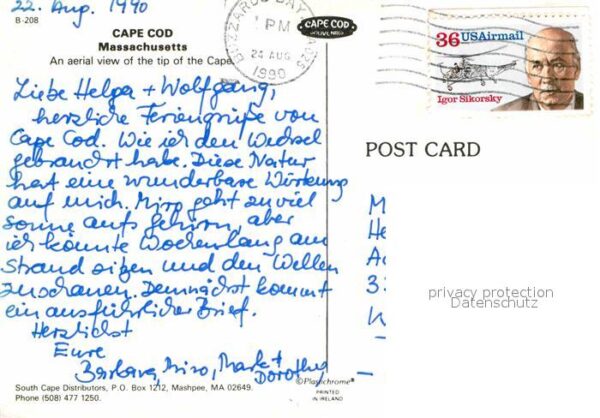 22. Aug. 1990
B-208
CAPE COD
Massachusetts
An aerial view of the tip of the Cape
Liebe Helga + Wolfgang,
herzliche Feriengrüße von
Cape Cod. Wie ich den Wechsel
gebraucht habe. Diese Natur
hat eine wunderbare Wirkung
auf mich. Miro geht zu viel
Sonne aufs Gehirn, aber
ich könnte wochenlang am
Strand sitzen und den Wellen
zuschauen. Demnächst kommt
ein ausführlicher Brief.
Herzlichst
Eure
Barbara, Miro, Mark +
Dorothy
South Cape Distributors, P.O. Box 1212, Mashpee, MA 02649.
Phone (508) 477 1250.
©Plastichrome®
PRINTED
IN IRELAND
BUZZARDS BAY
PM
24 AUG
1990
CAPE COD
36 USAirmail
Igor Sikorsky
POST CARD
M
He
3
privacy protection
Datenschutz